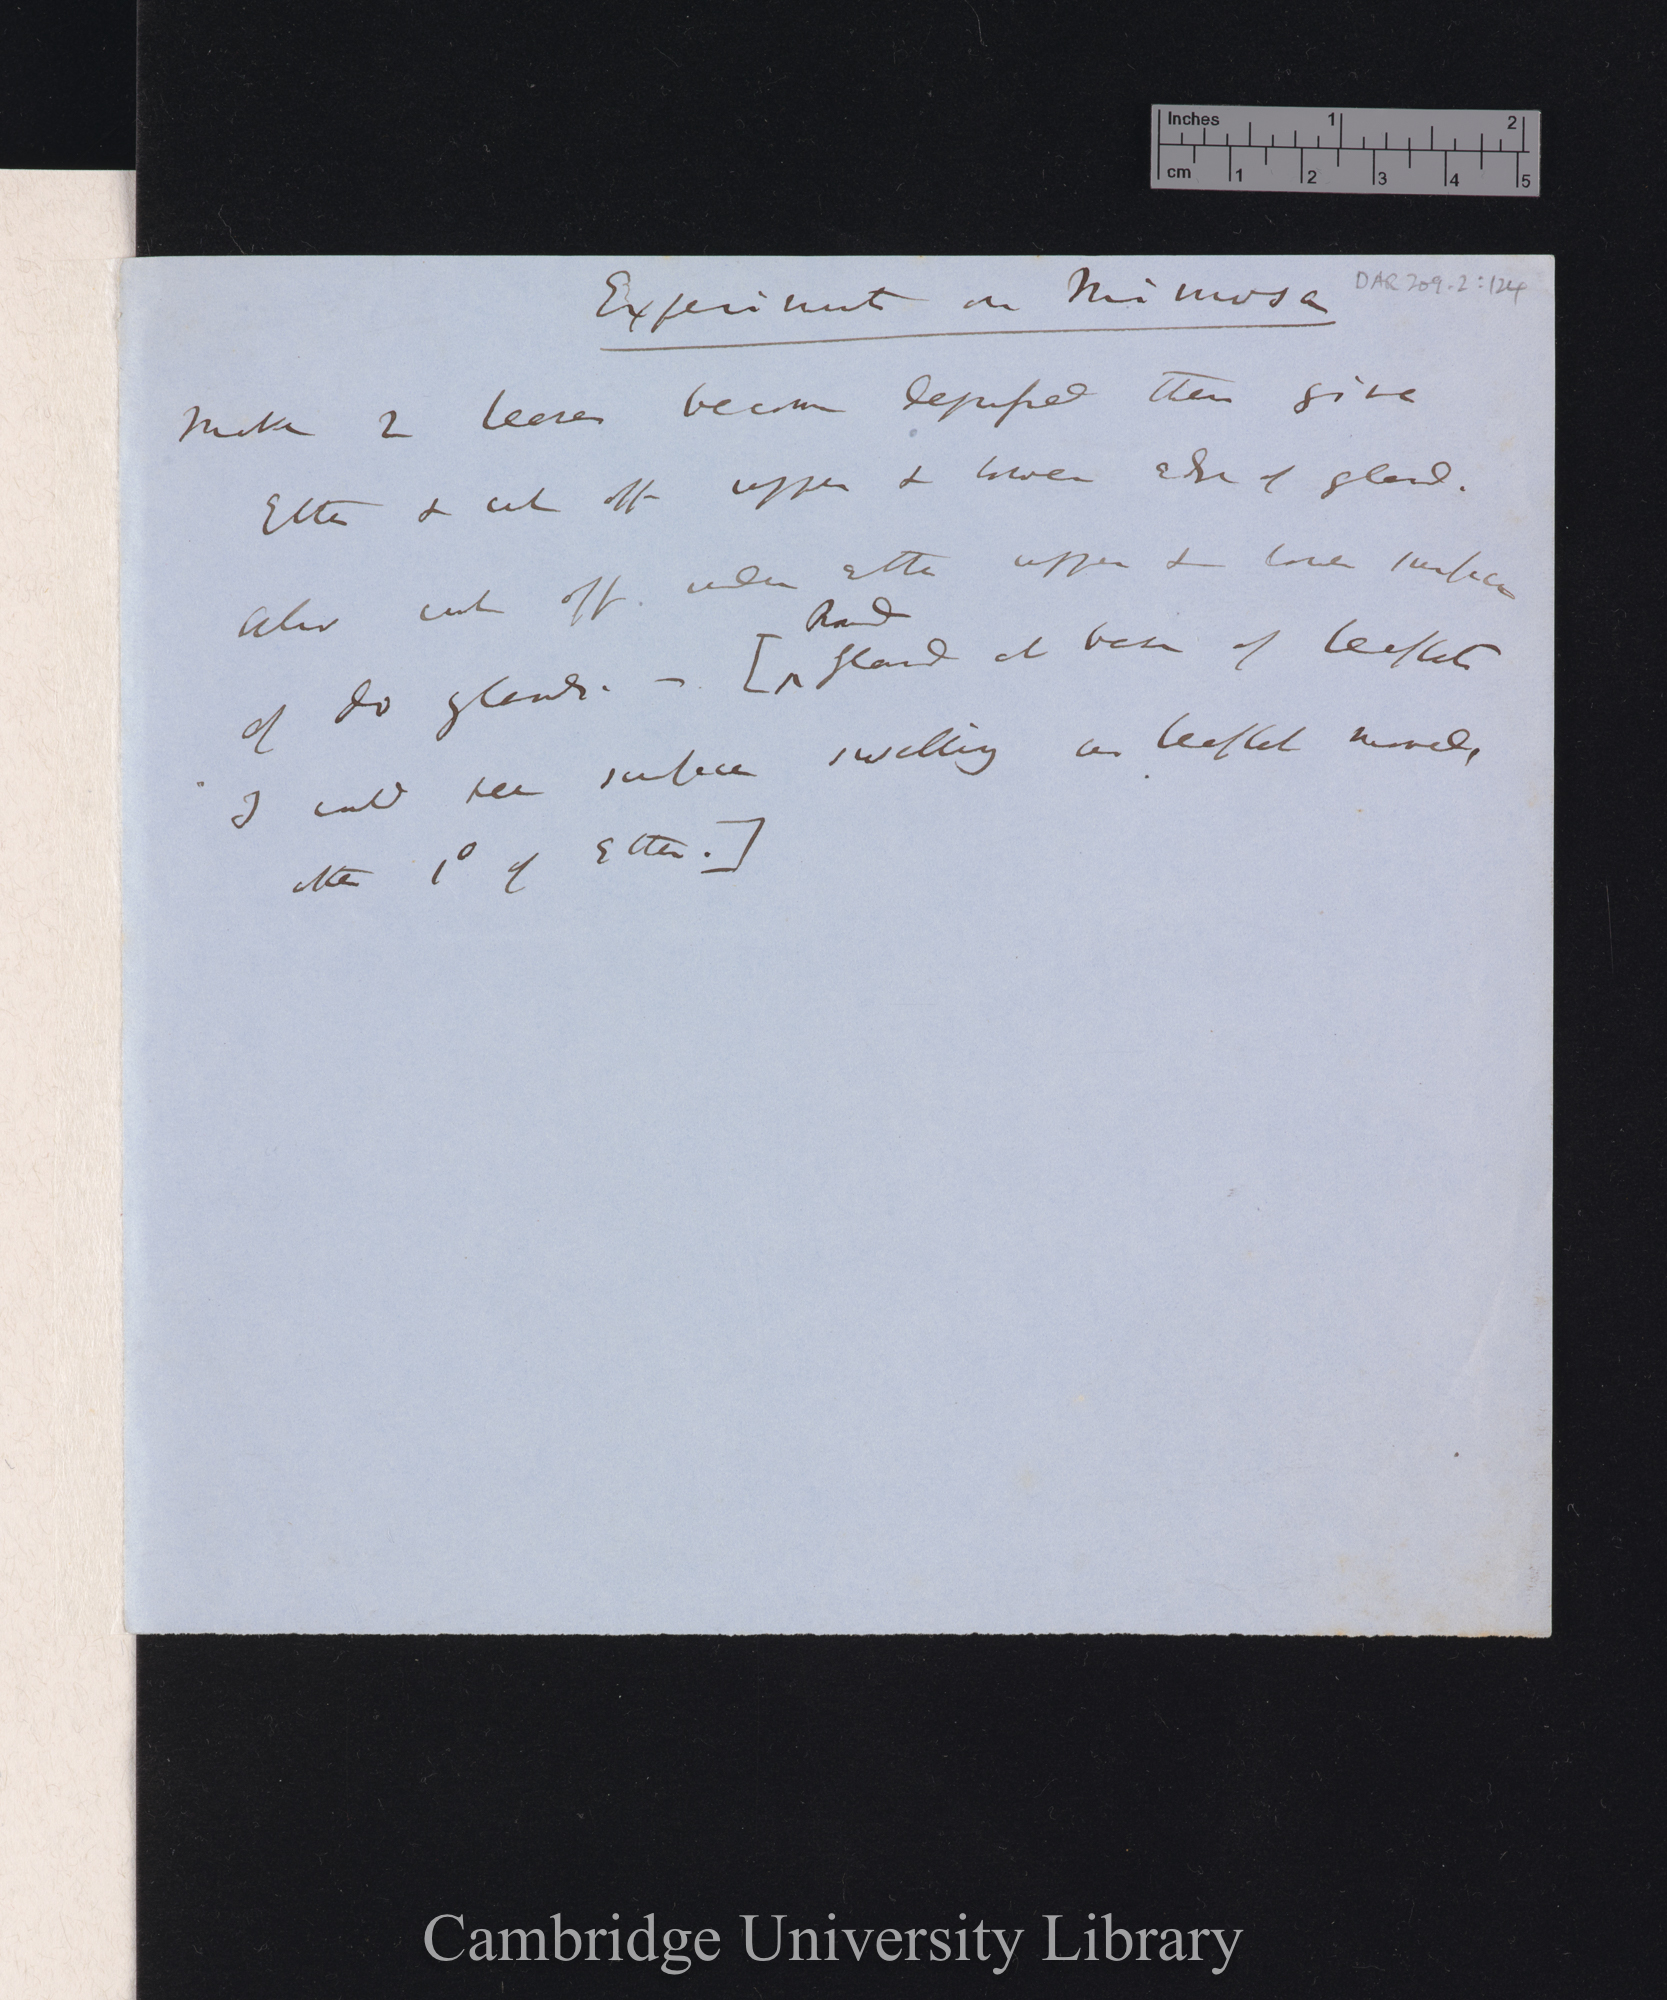 Inches 1 2
cm 1 2 3 4 5
DAR 209.2:124
Experiment on Mimosa
Make 2 leaves become depressed then give
Ether & cut off upper & lower edge of gland.
Also cut off under ether upper & lower surfaces
of do glands. — [^ Gland at base of leaflets
I could see surface swelling as leaflet moved,
after 1° of Ether.]
Cambridge University Library